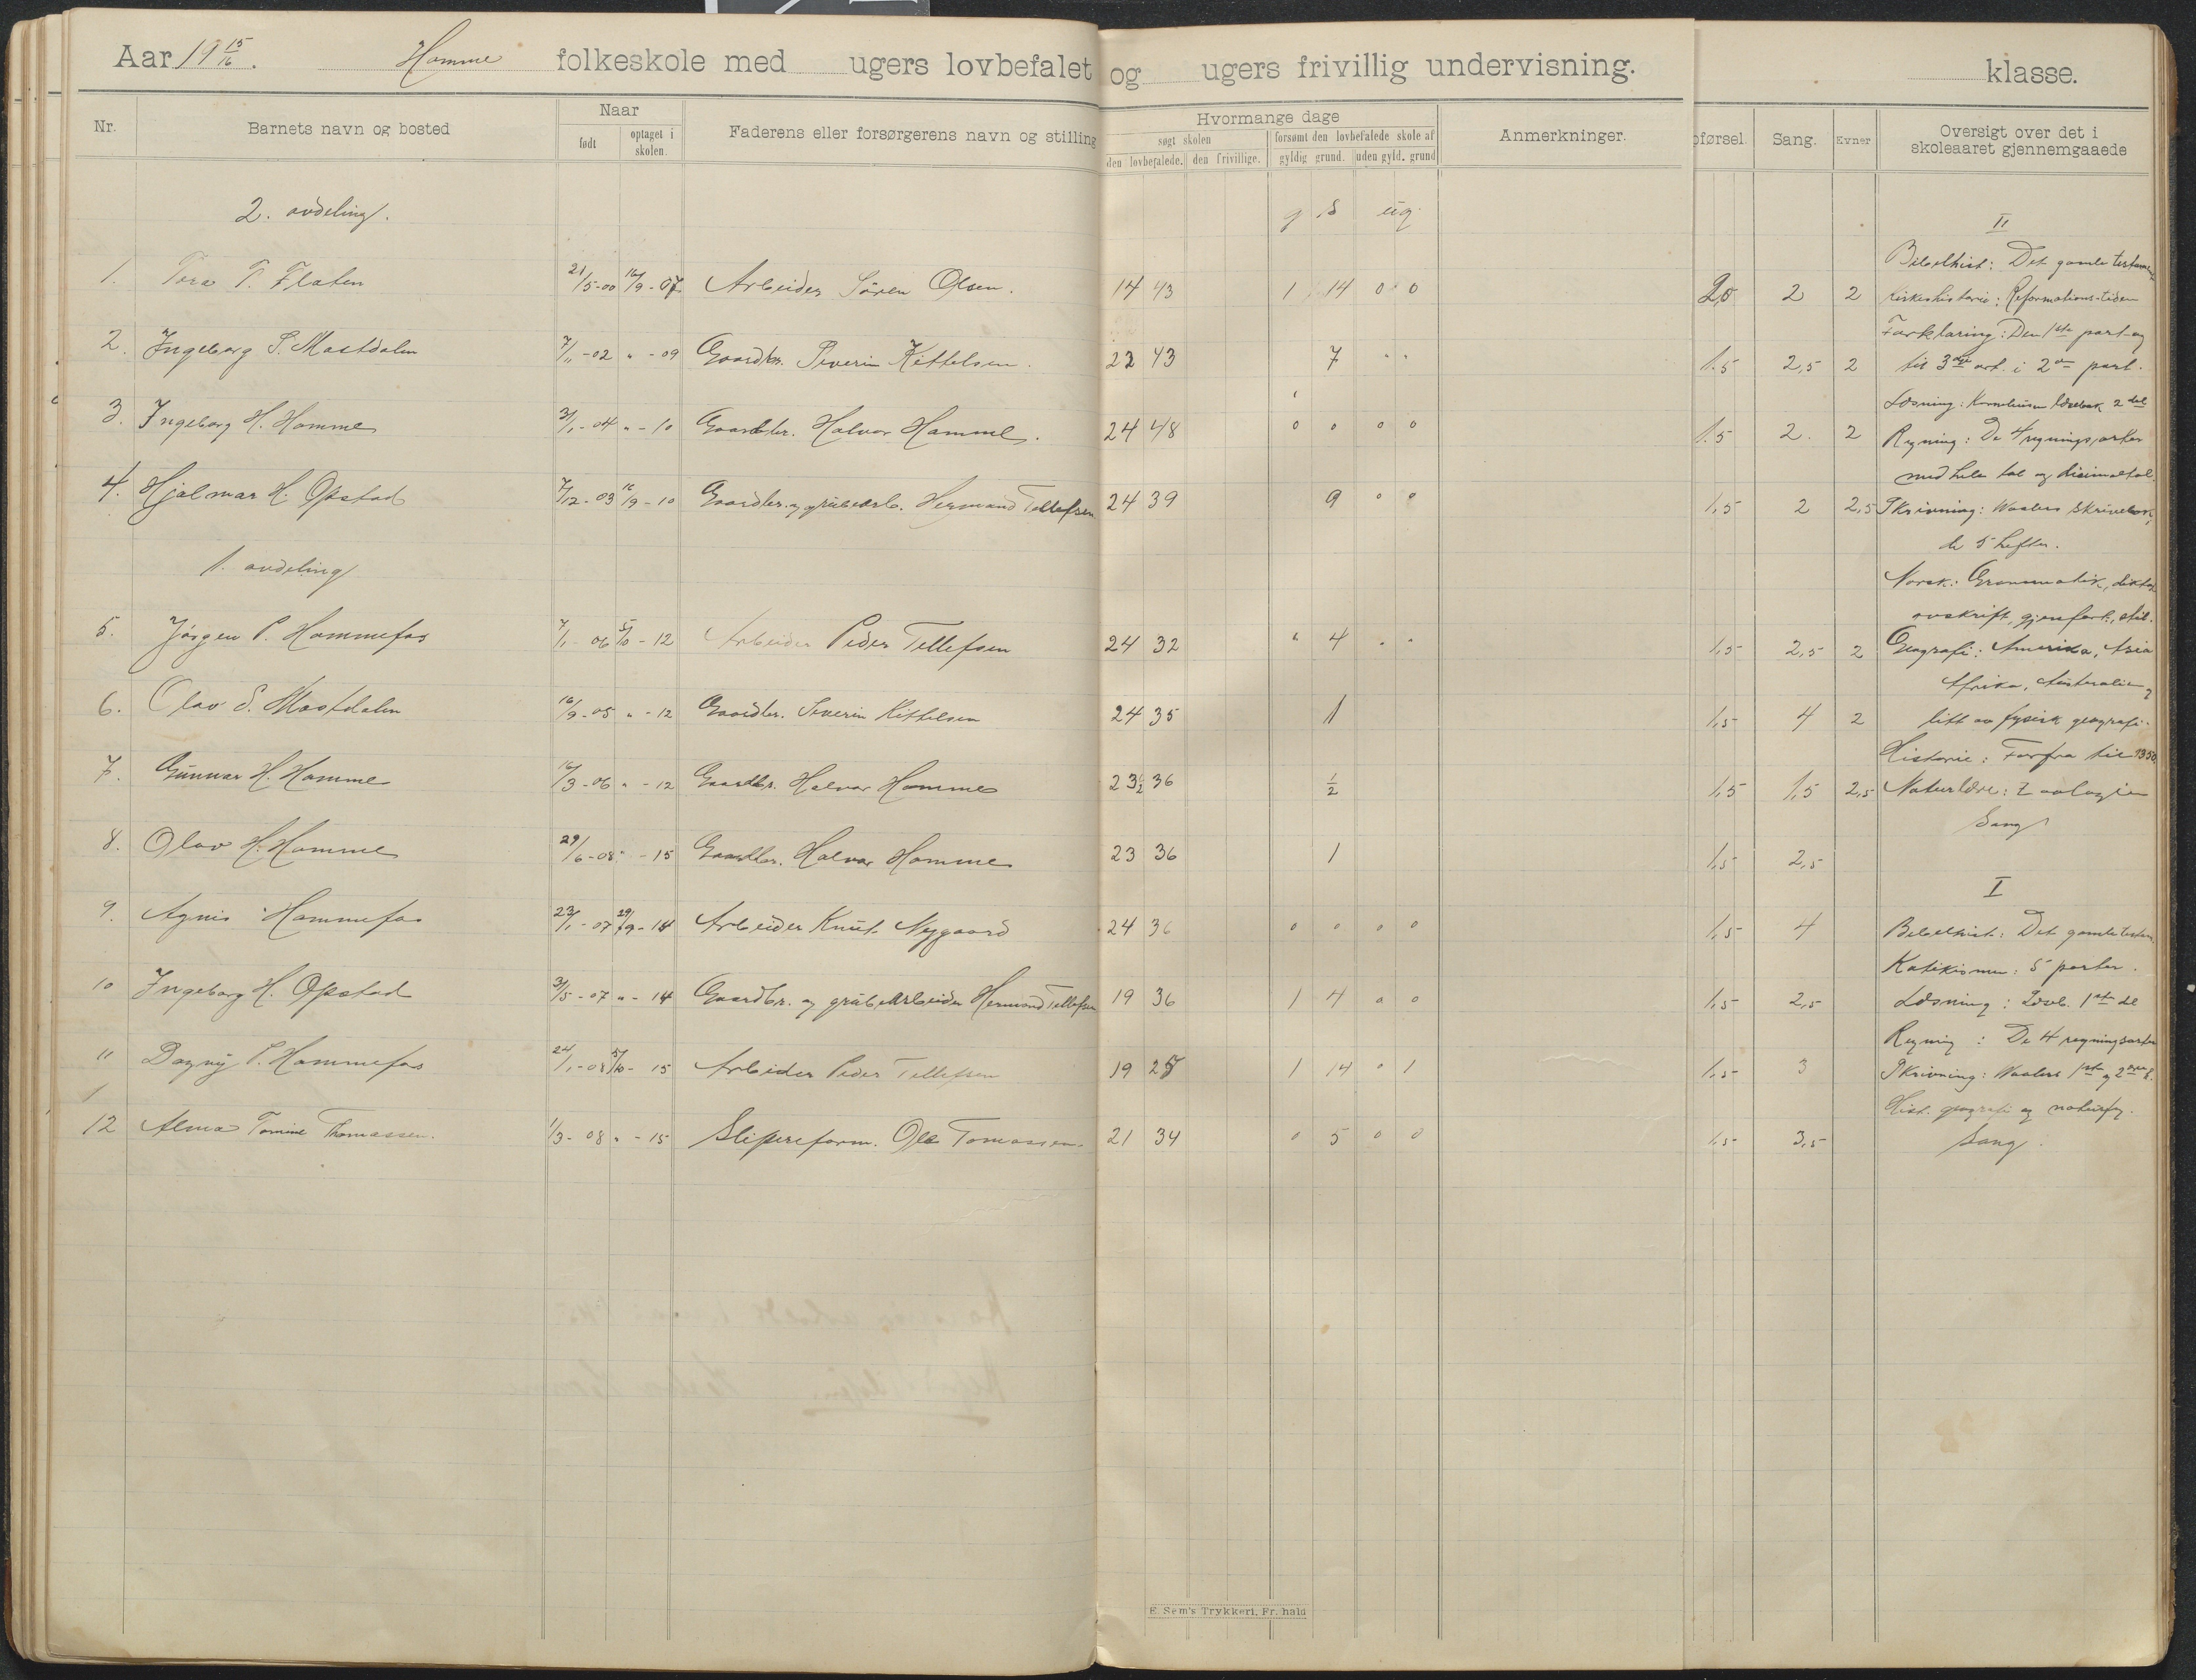 Aar 19 15/16. Homme folkeskole med ugers lovbefalet og ugers frivillig undervisning. klasse.
Nr. Barnets navn og bosted Naar født optaget i skolen. Faderens eller forsørgerens navn og stilling Hvormange dage søgt skolen den lovbefalede. den frivillige. forsømt den lovbefalede skole af gyldig grund. uden gyld. grund Anmerkninger. pførsel. Sang. Evner Oversigt over det i skoleaaret gjennemgaaede
2. avdeling. g s ug
1. Tora T. Flaten 21/5-00 16/9-07 Arbeider Sören Olsen. 14 43 1 14 0 0 2,0 2 2
2. Ingeborg S. Mastdalen 7/11-02 " -09 Gaardbr. Severin Kittelsen. 23 43 7 " " 1.5 2,5 2
3. Ingeborg H. Homme 3/1-04 " -10 Gaardbr. Halvor Homme. 24 48 0 0 0 0 1.5 2. 2
4. Hjalmar H. Opstad 7/12-03 16/9-10 Gaardbr. og grubearb. Hermand Tellefsen 24 39 9 0 0 1,5 2 2,5
1. avdeling
5. Jörgen P. Hommefos 7/1-06 5/10-12 Arbeider Peder Tellefsen 24 32 " 4 " " 1,5 2,5 2
6. Olav S. Mastdalen 16/9-05 " -12 Gaardbr. Severin Kittelsen 24 35 1 1,5 4 2
7. Gunnar H. Homme 16/3-06 " -12 Gaardbr. Halvor Homme 23 1/2 36 1/2 1,5 1,5 2,5
8. Olav H. Homme 29/6-08 " -15 Gaardbr. Halvor Homme 23 36 1 1,5 2,5
9. Agnes Hommefos 23/1-07 29/9-14 Arbeider Knut Nygaard 24 36 0 0 0 0 1,5 4
10 Ingeborg H. Opstad 31/5-07 " -14 Gaardbr. og grubearbeider Hermand Tellefsen 19 36 1 4 0 0 1,5 2,5
11 Dagny P. Hommefos 24/1-08 5/10-15 Arbeider Peder Tellefsen 19 25 1 14 0 1 1,5 3
12 Alma Tomine Thomassen. 1/3-08 " -15 Slipereform. Ole Tomassen. 21 34 0 5 0 0 1,5 3,5
II
Bibelhist: Det gamle testamen
Kirkeshistorie: Reformations-tiden
Forklaring: Den 1ste part og
til 3dje art. i 2den part.
Læsning: læsebok 2 del
Regning: De 4 regningsarter
med hele tal og decimaltal.
Skrivning: Waalers skrivebok,
de 5 hefter.
Norsk: Grammatik, diktat
avskrift, gjenfort., stil.
Geografi: Amerika, Asia
Afrika, Australien,
litt av fysisk geografi.
Historie: Forfra til 1350.
Naturlære: Zoologien
Sang
I
Bibelhist: Det gamle testam.
Katekismen: 5 parter.
Læsning: Læseb. 1ste del
Regning: De 4 regningsarter
Skrivning: Waalers 1ste og 2den h.
Hist. geografi og naturfg.
Sang.
E. Sem's Trykkeri, Fr.hald